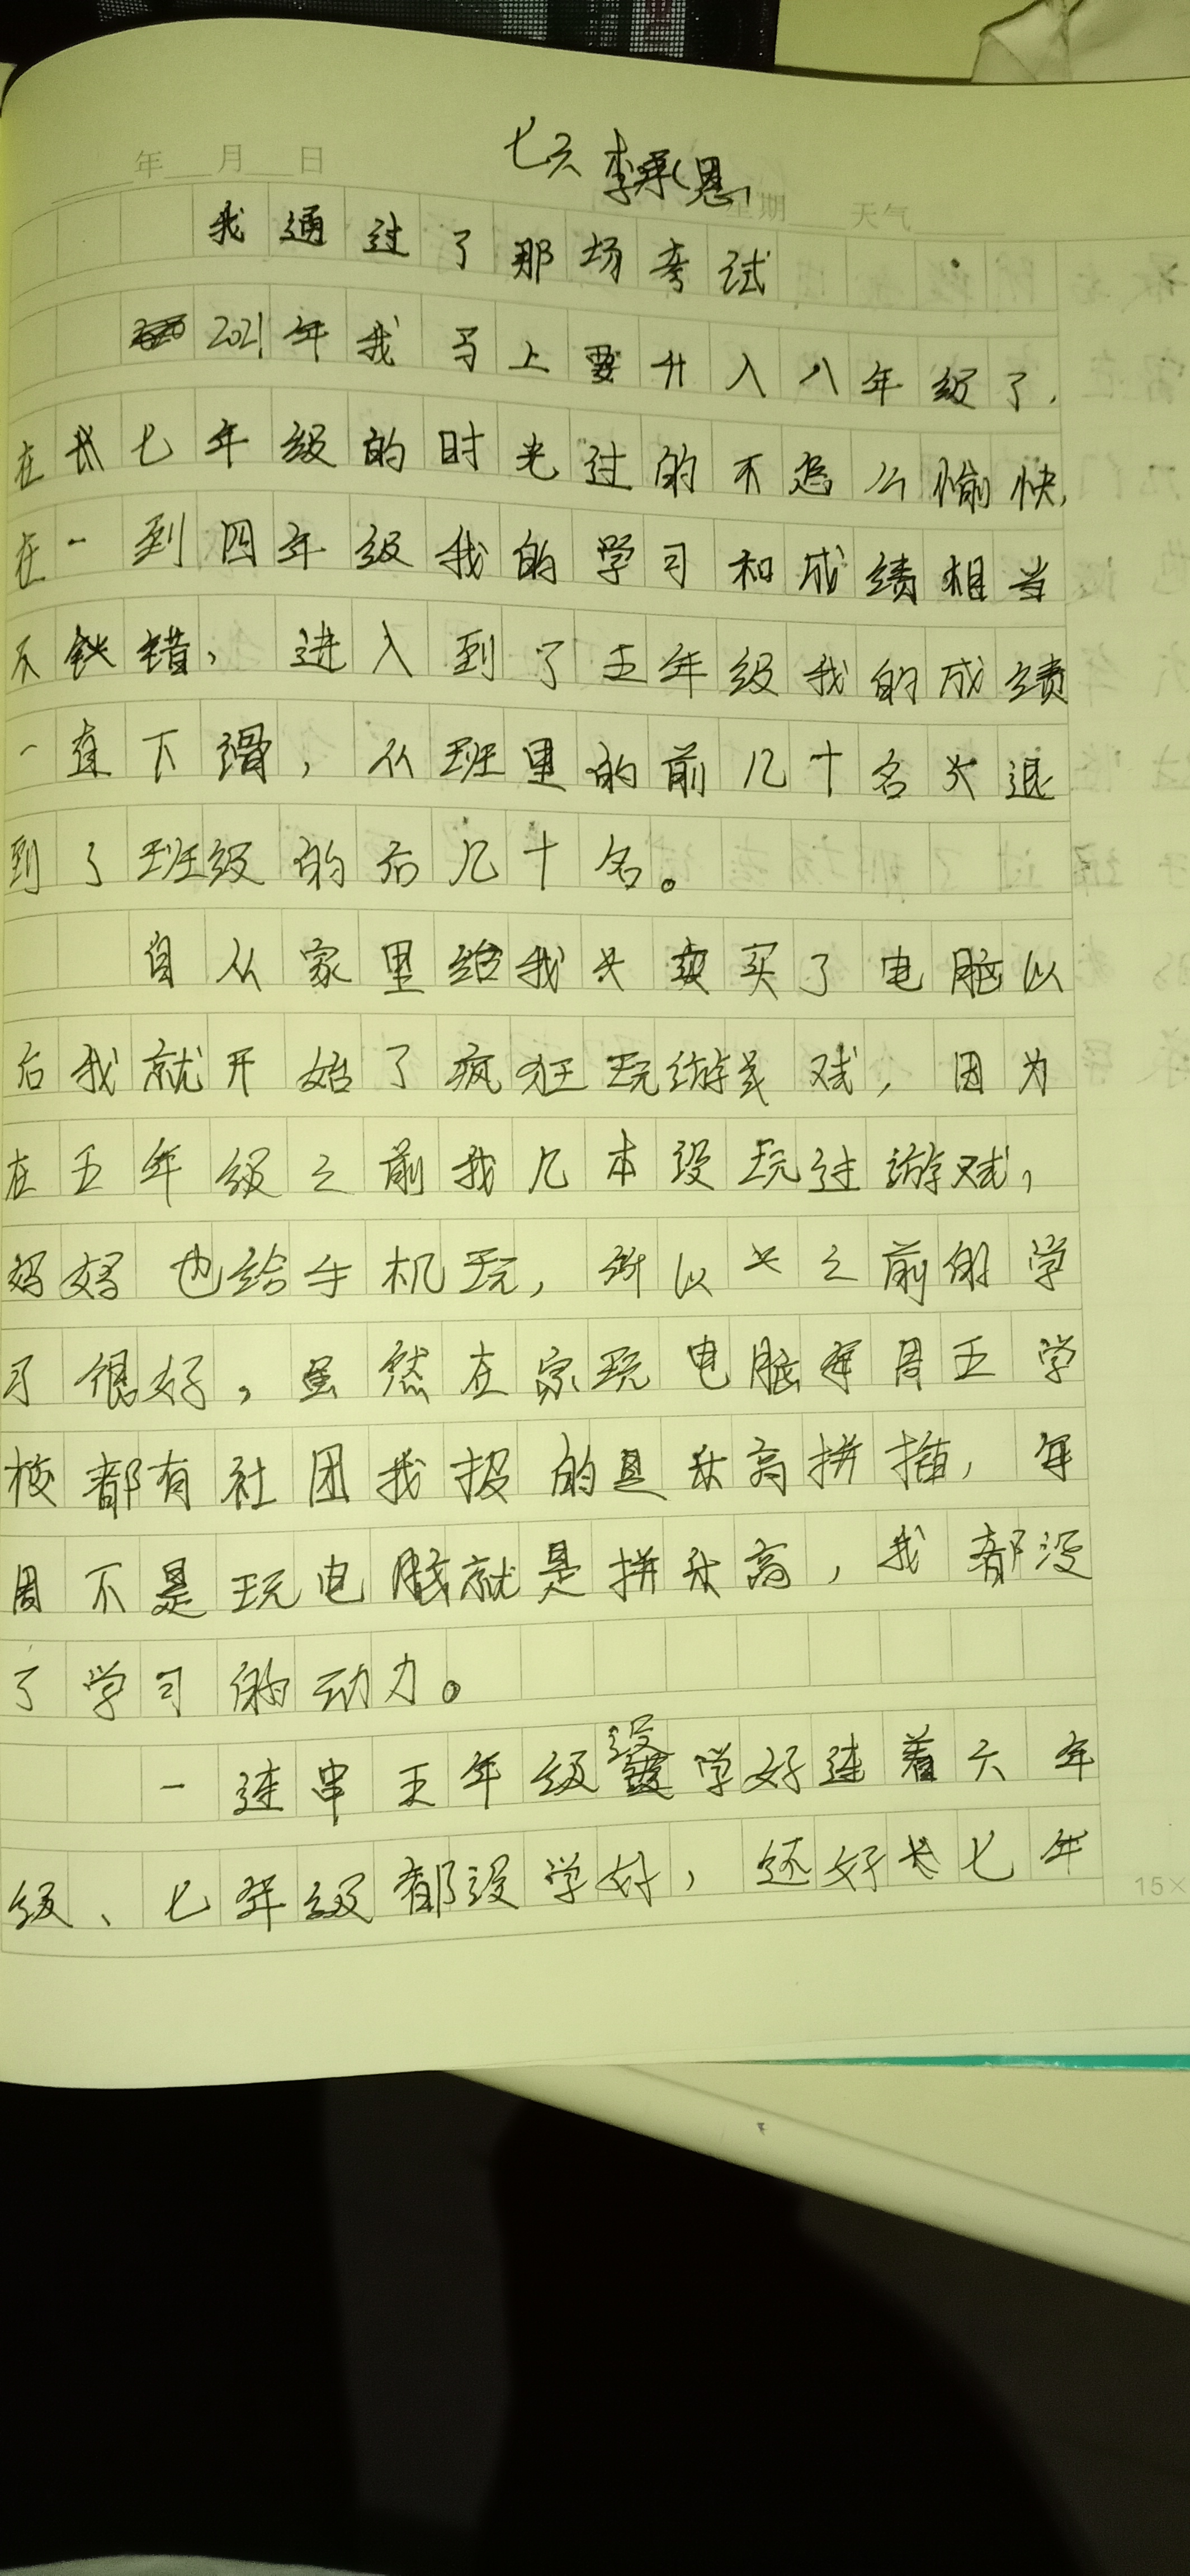 七六 李承恩
年 月 日
星期 天气
我通过了那场考试
2021年我马上要升入八年级了,
在我七年级的时光过的不怎么愉快,
在一到四年级我的学习和成绩相当
不错,进入到了五年级我的成绩
一直下滑,从班里的前几十名退
到了班级的后几十名。
自从家里给我买了电脑以
后我就开始了疯狂玩游戏,因为
在五年级之前我几本没玩过游戏,
妈妈也给手机玩,所以之前的学
习很好,虽然在家玩电脑每周五学
校都有社团我报的是乐高拼插,每
周不是玩电脑就是拼乐高,我都没
了学习的动力。
一连串五年级没学好连着六年
级、七年级都没学好,还好七年
15×